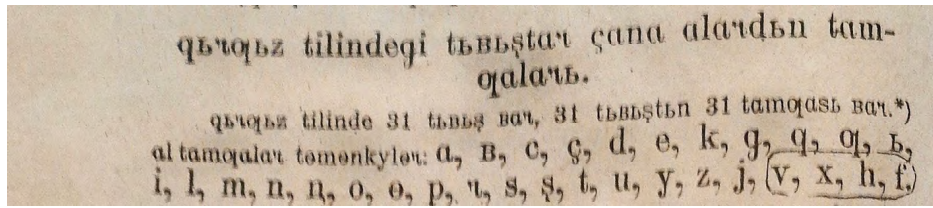 qьrƣьz tilindegi tьвьştar çana alardьn tam-
ƣalarь.
qьrƣьz tilinde 31 tьвьş вar, 31 tьвьştьn 31 tamƣasь вar.*)
al tamƣalar tɵmɵnkylɵr: a, в, c, ç, d, e, k, g, q, ƣ, ь,
i, l, m, n, ꞑ, o, ɵ, p, r, s, ş, t, u, y, z, j, (v, x, h, f.)